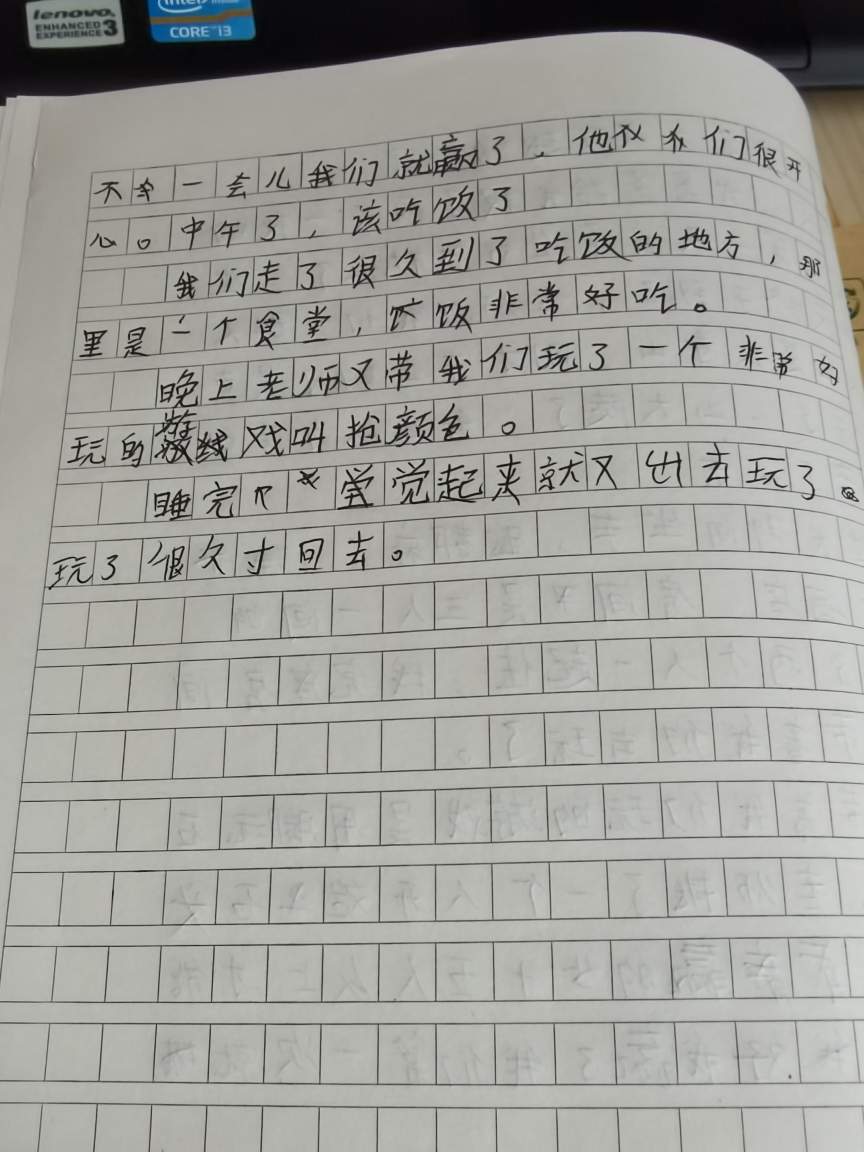 lenovo
ENHANCED
EXPERIENCE 3
intel inside
CORE i3
不一会儿我们就赢了，我们很开
心。中午了，该吃饭了
我们走了很久到了吃饭的地方，那
里是一个食堂，饭非常好吃。
晚上老师又带我们玩了一个非常好
玩的游戏叫抢颜色。
睡完觉起来就又出去玩了。
玩了很久才回去。